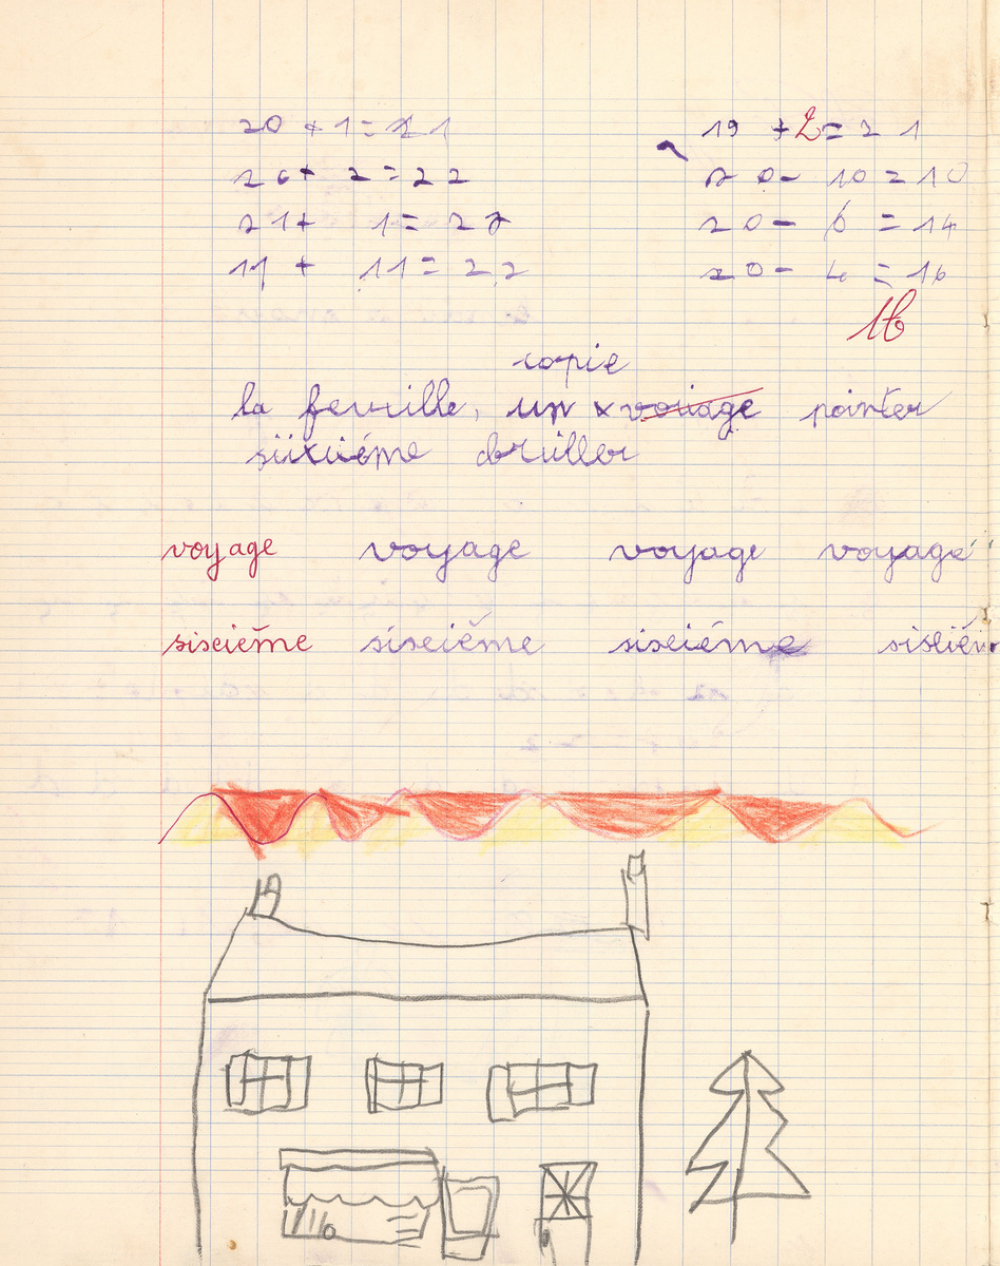 20 + 1 = 21
20 + 2 = 22
21 + 1 = 22
11 + 11 = 22
19 + 2 = 21
20 - 10 = 10
20 - 6 = 14
20 - 4 = 16
16
copie
la feuille, un x voiiage pointer
siixiième brüller
voyage voyage voyage voyage
sixième sixième sixième sixièm